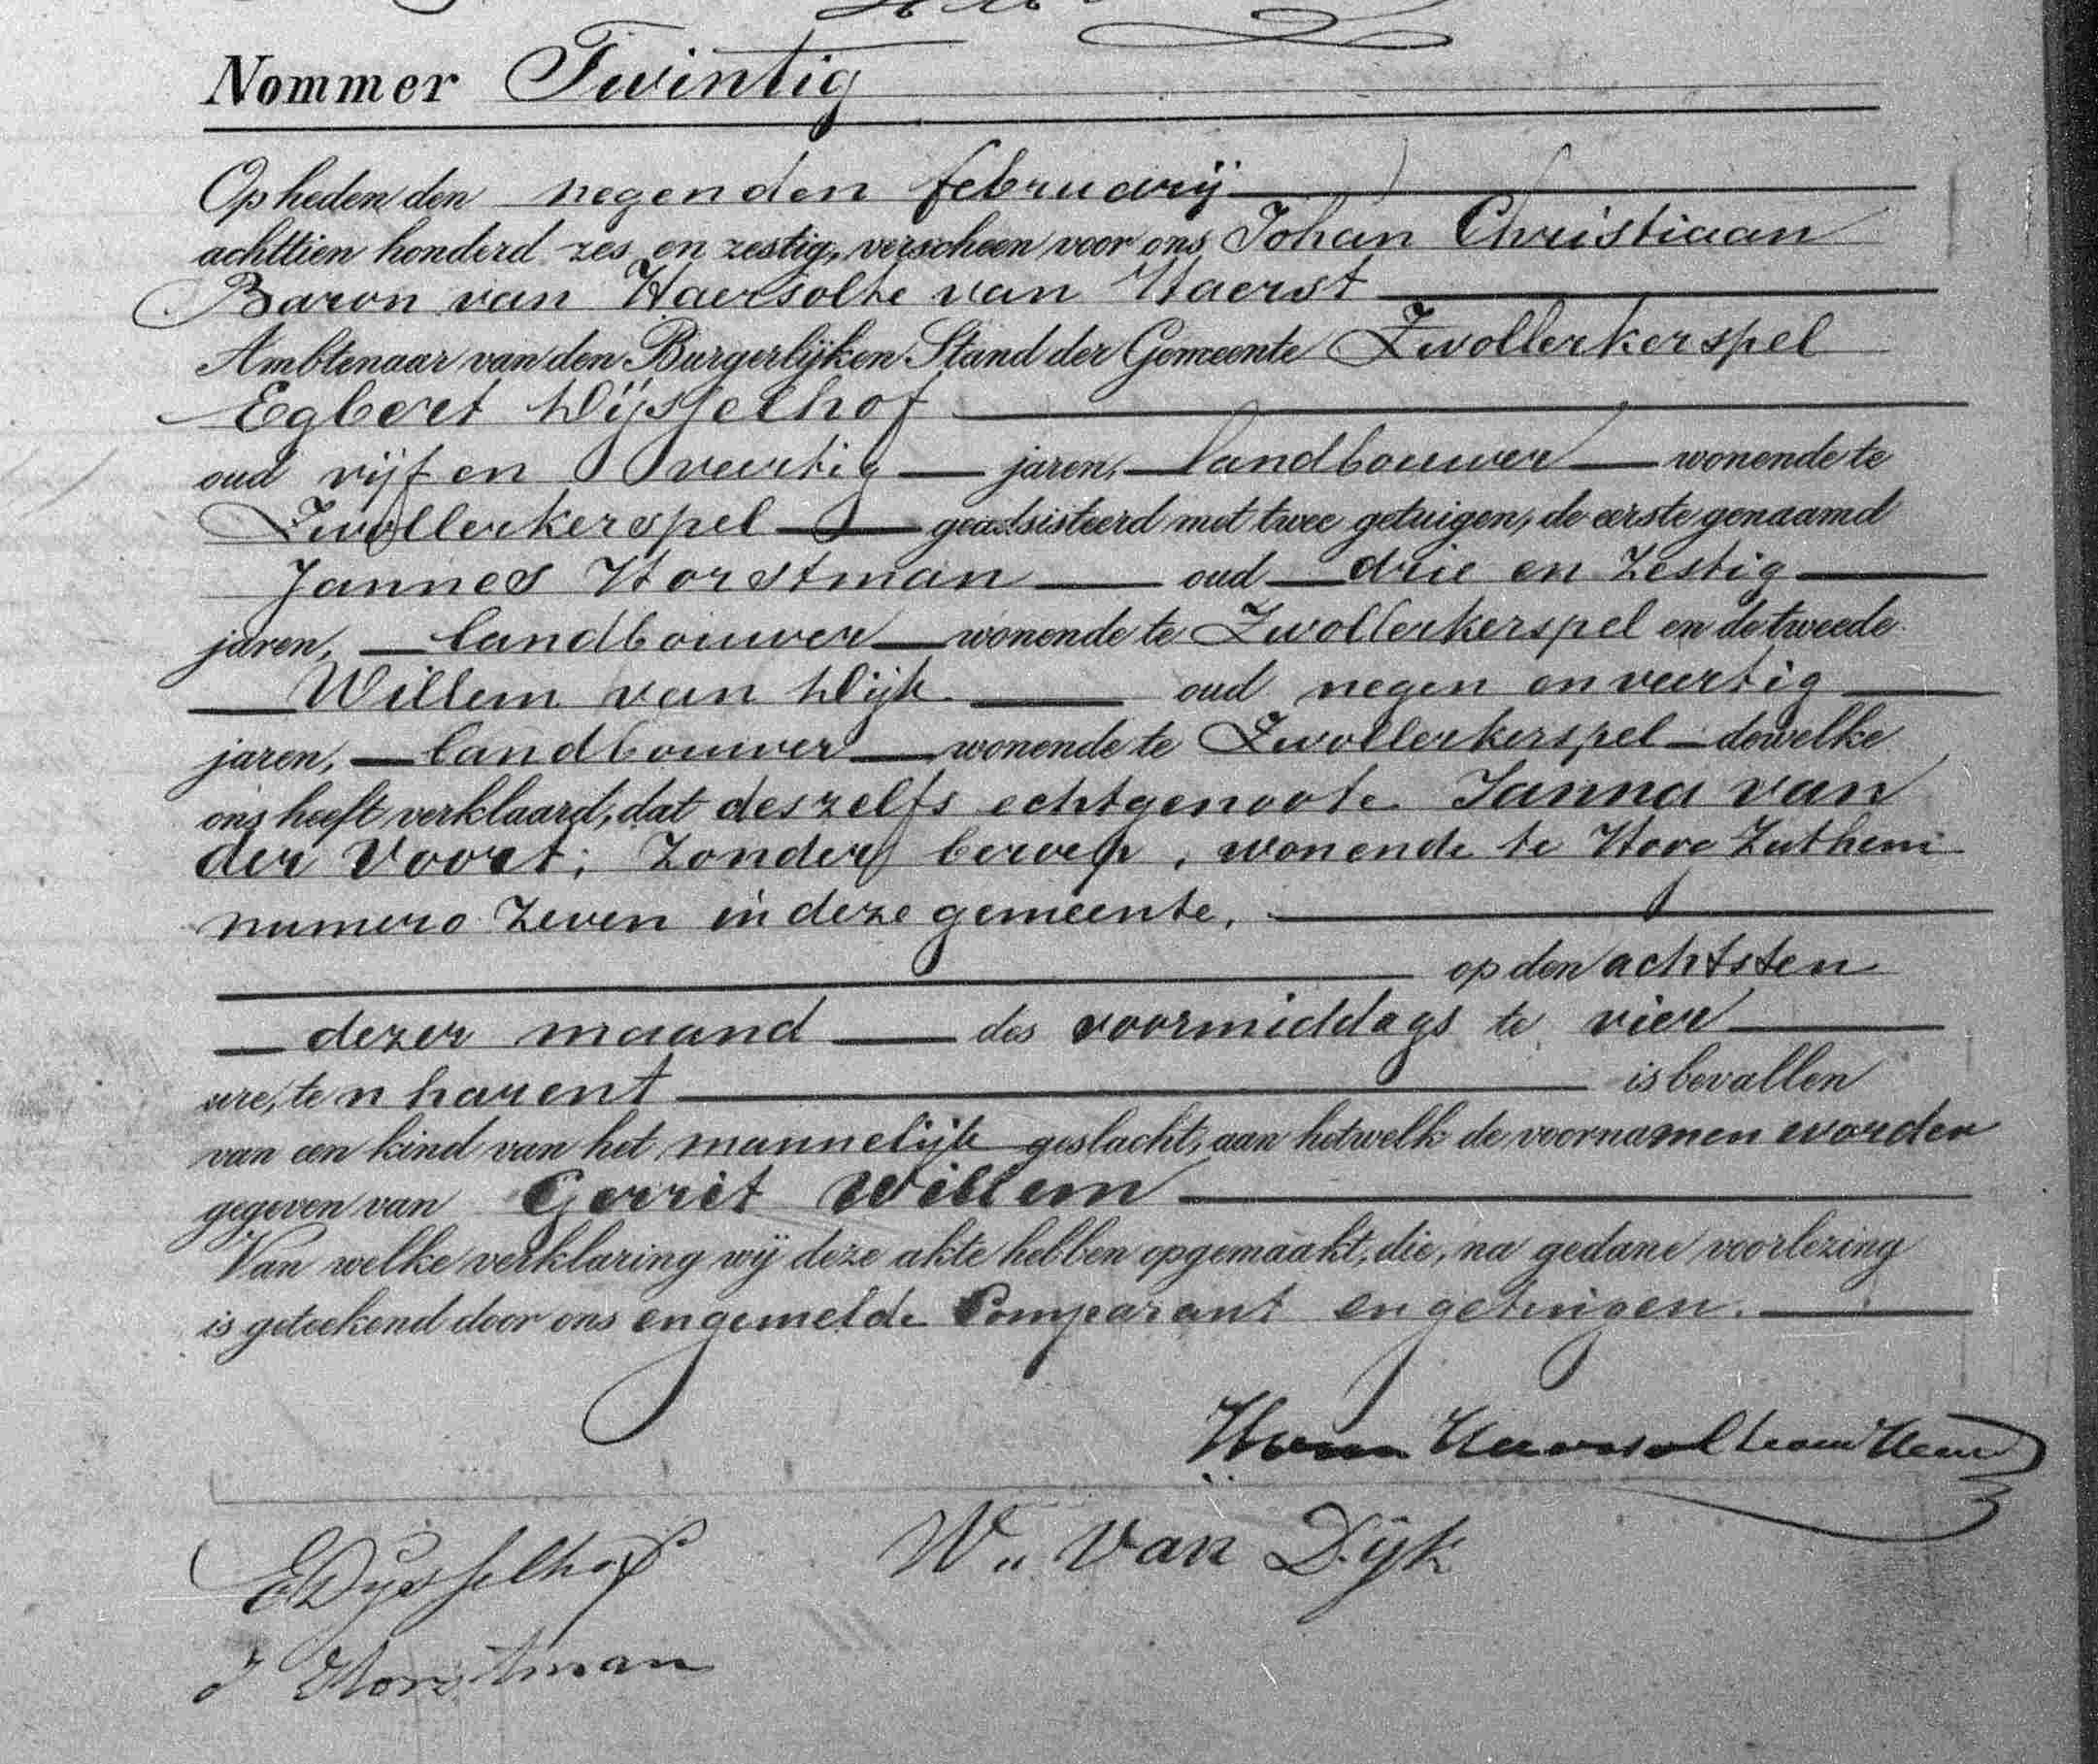 Nommer Twintig
Op heden den negenden februarij
achttien honderd zes en zestig, verscheen voor ons Johan Christiaan
Baron van Haersolte van Haerst
Ambtenaar van den Burgerlijken Stand der Gemeente Zwollerkerspel
Egbert Dijsselhof
oud vijf en veertig jaren, landbouwer wonende te
Zwollerkerspel geadsisteerd met twee getuigen, de eerste genaamd
Jannes Horstman oud drie en zestig
jaren, landbouwer wonende te Zwollerkerspel en de tweede
Willem van Dijk oud negen en veertig
jaren, landbouwer wonende te Zwollerkerspel dewelke
ons heeft verklaard, dat deszelfs echtgenoote Janna van
der Voort; zonder beroep, wonende te Herc Zuthem
numero zeven in deze gemeente,
op den achtsten
dezer maand des voormiddags te vier
ure, ten harent is bevallen
van een kind van het mannelijk geslacht, aan hetwelk de voornamen worden
gegeven van Gerrit Willem
Van welke verklaring wij deze akte hebben opgemaakt, die, na gedane voorlezing
is geteekend door ons en gemelde Comparant en getuigen.
E Dijsselhof W. van Dijk
J Horstman